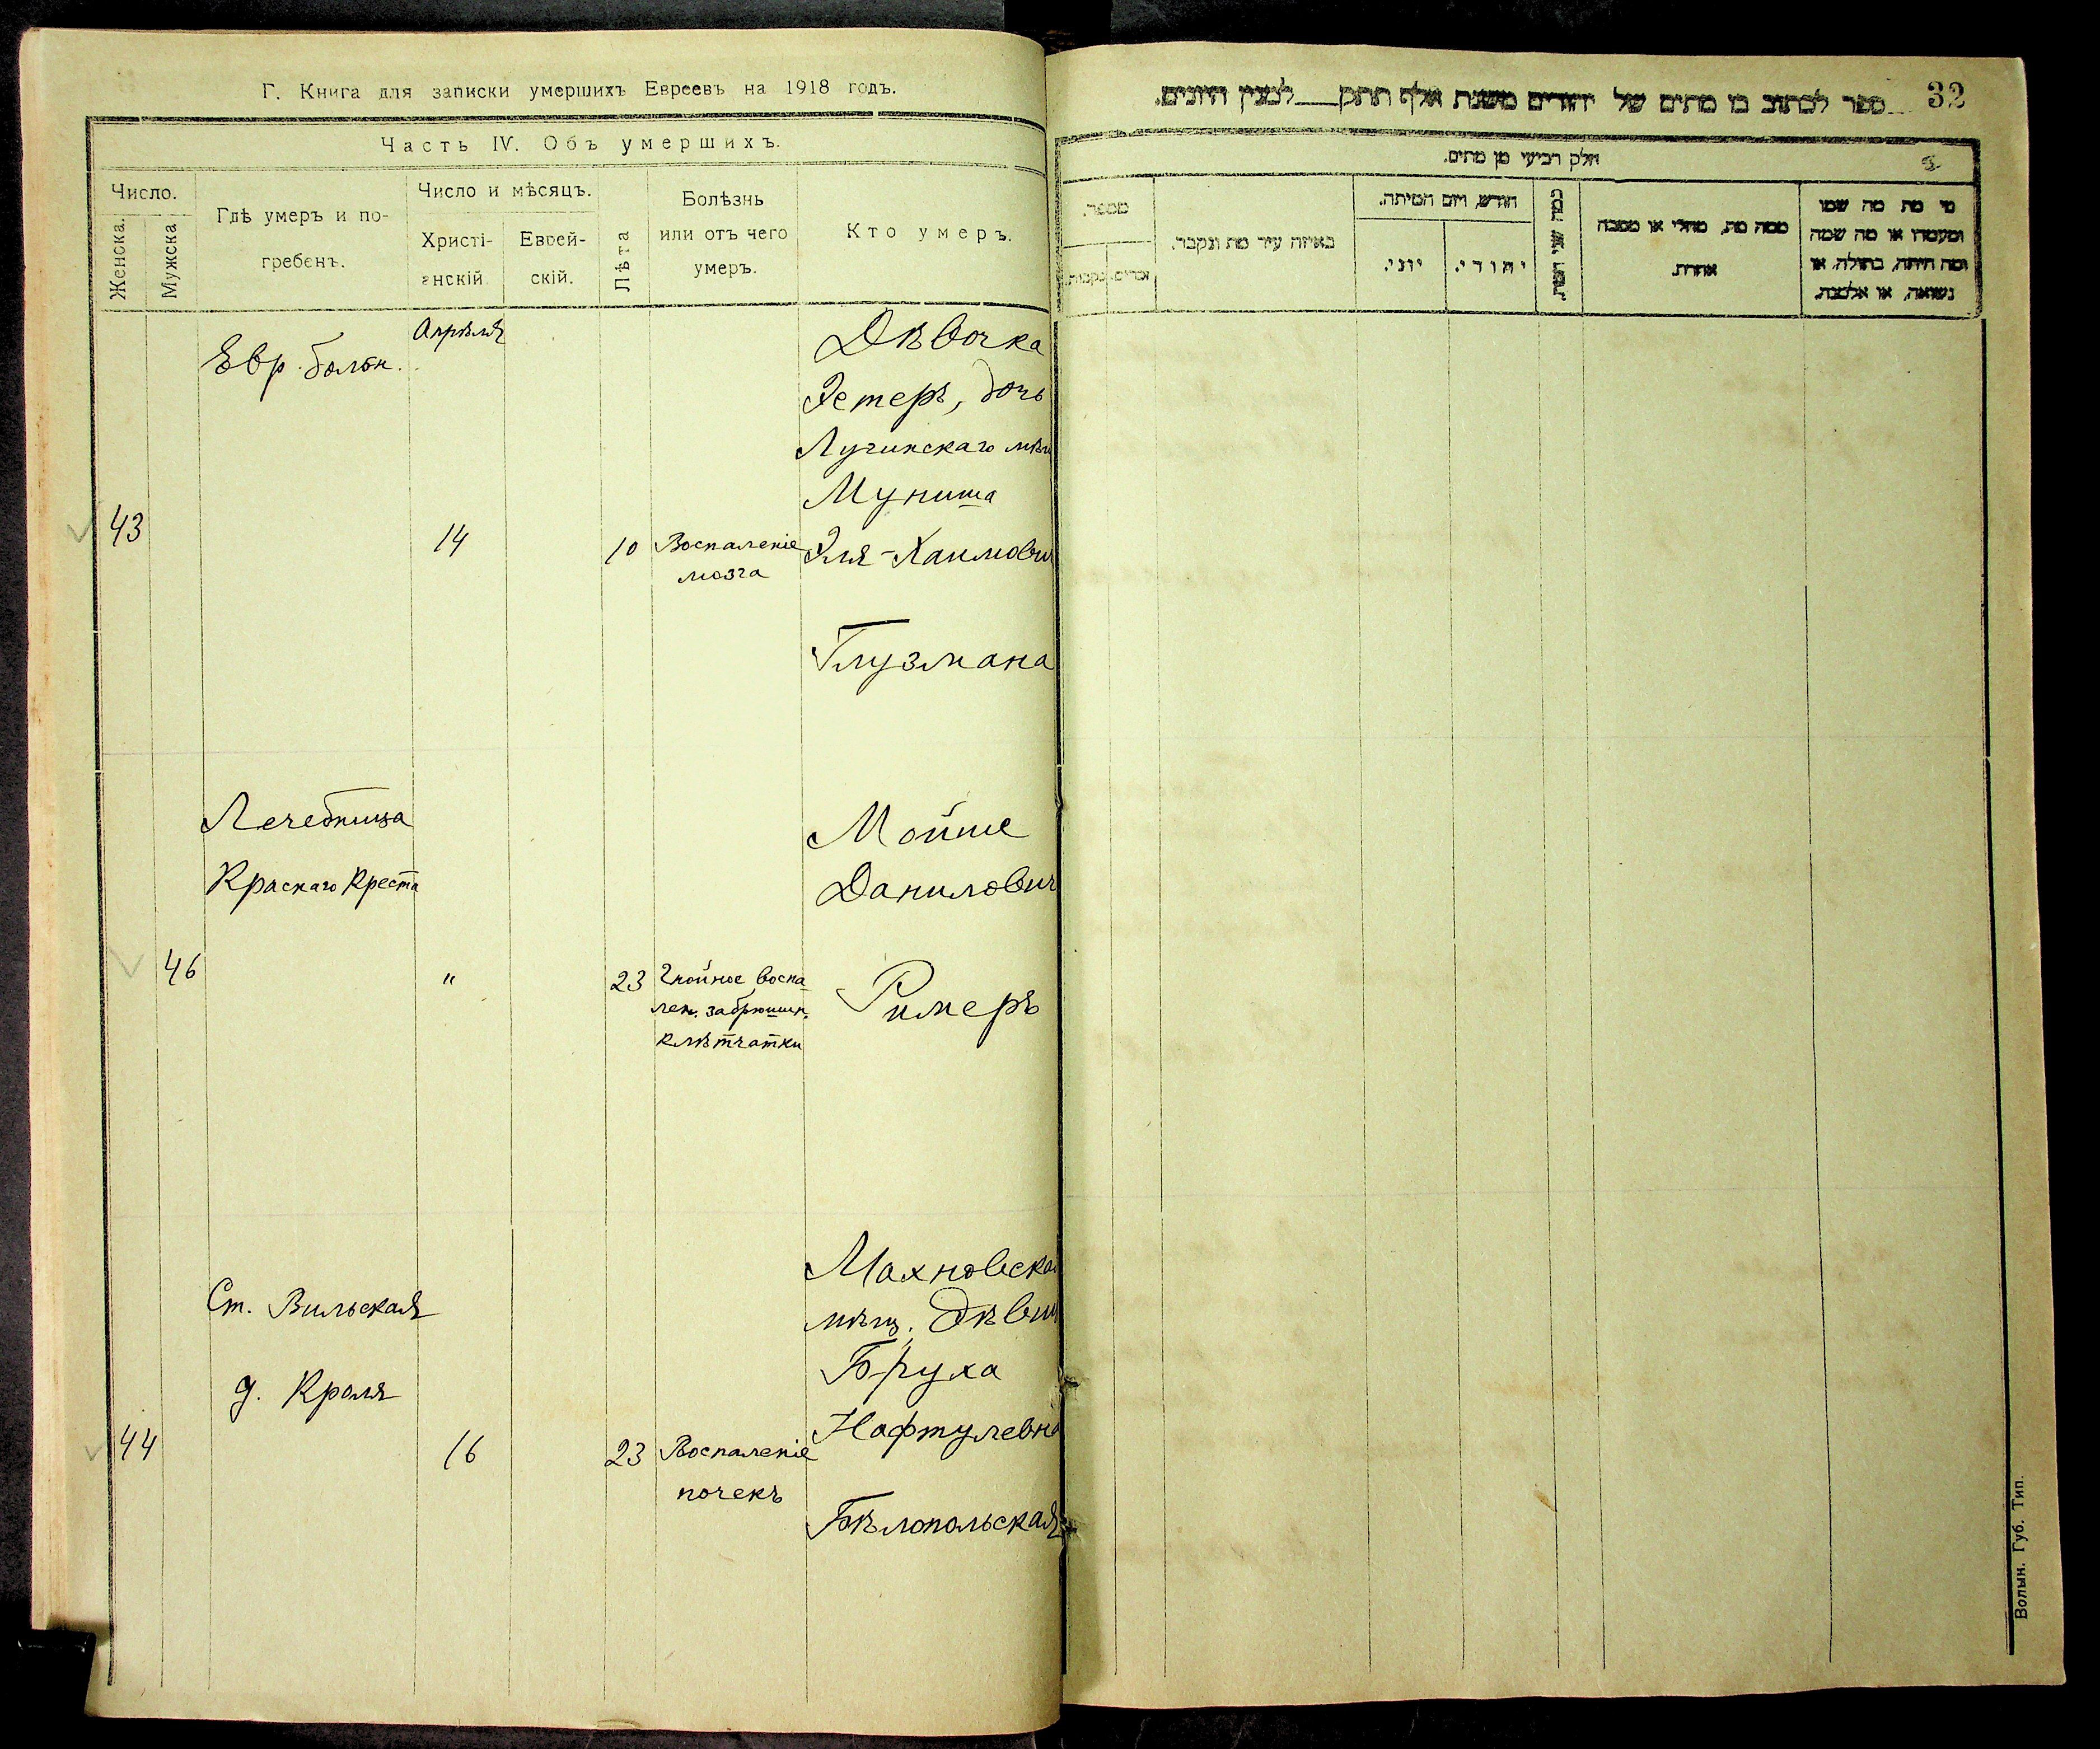 Г. Книга для записки умершихъ Евреевъ на 1918 годъ.
Часть IV. Объ умершихъ.
Число.
Женска.
Мужска
Гдѣ умеръ и по-
гребенъ.
Число и мѣсяцъ.
Христі-
анскій
Еврей-
скій.
Лѣта
Болѣзнь
или отъ чего
умеръ.
Кто умеръ.
Евр. больн.
Апрѣля
43
14
10
Воспаленіе
мозга
Дѣвочка
Эстеръ, дочь
Лугинскаго мѣщ
Муниша
Эля-Хаимович
Глузмана
Лечебница
Краснаго Креста
46
"
23
Гнойное воспа
лен. забрюшин.
клѣтчатки
Мойше
Данилович
Римеръ
Ст. Вильская
д. Краля
44
16
23
Воспаленіе
почекъ
Махновская
мѣщ. дѣвиц
Бруха
Нафтулевна
Бѣлопольская
32
ספר לכתוב בו מתים של יהודים משנת אלף תתק___למנין היונים.
חלק רביעי מן מתים.
מי מת מה שמו
ומעמדו או מה שמה
ומה היתה, בתולה, או
נשואה, או אלמנה.
ממה מת, מחלי או מסבה
אחרת.
כמה שני המת.
חודש, ויום המיתה.
יהודי.
יוני.
באיזה עיר מת ונקבר.
מספר.
זכרים.
נקבות.
Волын. Губ. Тип.